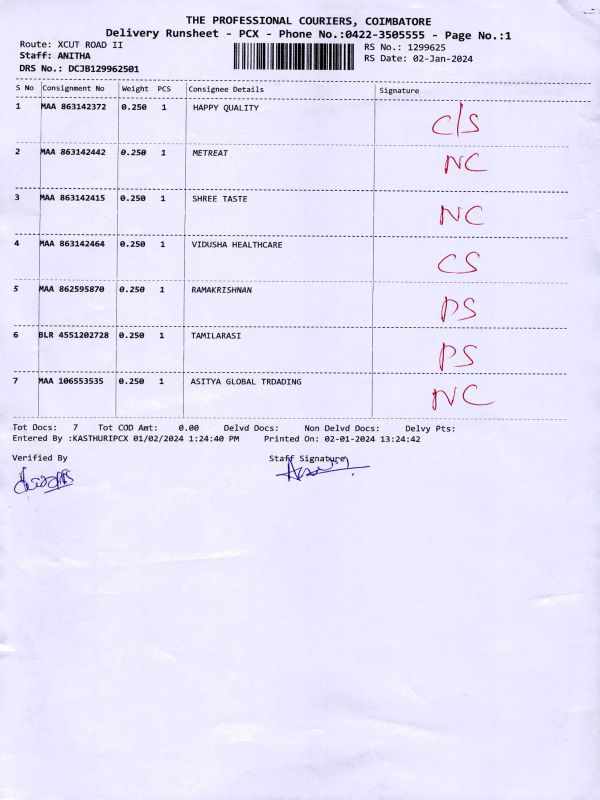 THE PROFESSIONAL COURIERS, COIMBATORE
Delivery Runsheet - PCX - Phone No.:0422-3505555 - Page No.:1
Route: XCUT ROAD II RS No.: 1299625
Staff: ANITHA RS Date: 02-Jan-2024
DRS No.: DCJB129962501
S No Consignment No Weight PCS Consignee Details Signature
1 MAA 863142372 0.250 1 HAPPY QUALITY C/S
2 MAA 863142442 0.250 1 METREAT NC
3 MAA 863142415 0.250 1 SHREE TASTE NC
4 MAA 863142464 0.250 1 VIDUSHA HEALTHCARE CS
5 MAA 862595870 0.250 1 RAMAKRISHNAN PS
6 BLR 4551202728 0.250 1 TAMILARASI PS
7 MAA 106553535 0.250 1 ASITYA GLOBAL TRDADING NC
Tot Docs: 7 Tot COD Amt: 0.00 Delvd Docs: Non Delvd Docs: Delvy Pts:
Entered By :KASTHURIPCX 01/02/2024 1:24:40 PM Printed On: 02-01-2024 13:24:42
Verified By Staff Signature